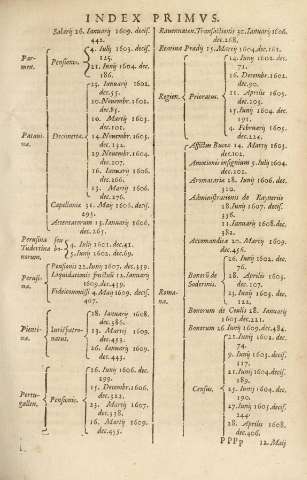 INDEX PRIMVS.
Salarij 26. Ianuarij 1609. decis.
442.
Parmen.
Pensionis.
4. Iulij 1603. decis.
125.
21. Iunij 1604. dec.
186.
Patauina.
Decimarum.
25. Ianuarij 1602.
dec. 55.
20. Nouembr. 1602.
dec. 85.
10. Martij 1603.
dec. 101.
14. Nouembr. 1603.
dec. 132.
29. Nouembr. 1604.
dec. 207.
16. Ianuarij 1606.
dec. 266.
13. Martij 1606.
dec. 276.
Capellaniæ 31. Maij 1606. decis.
295.
Armentariorum 13. Ianuarij 1606.
dec. 265.
Perusina seu
Tudertina bonorum.
4. Iulij 1602. dec. 41.
5. Iunij 1602. dec. 69.
Perusina.
Pensionis 22. Iunij 1607. dec. 339.
Liquidationis fructuũ 12. Ianuarij
1609. dec. 439.
Fideicommissi 4. Maij 1609. decis.
467.
Placentina.
Iurispatronatus.
28. Ianuarij 1608.
dec. 386.
13. Martij 1609.
dec. 453.
26. Ianuarij 1609.
dec. 443.
Portugallen.
Pensionis.
26. Iunij 1606.
dec. 299.
15. Decembr. 1606.
dec. 322.
23. Martij 1607.
dec. 338.
16. Martij 1609.
dec. 455.
Rauennaten. Transactionis 30. Ianuarij 1606.
dec. 268.
Romina Pradij 15. Martij 1604. dec. 161.
Regien.
Prioratus.
14. Iunij 1602. dec.
71.
16. Decembr. 1602.
dec. 90.
21. Aprilis 1603.
dec. 103.
25. Iunij 1604. dec.
191.
4. Februarij 1605.
dec. 224.
Romana.
Affictus Bucca 14. Martij 1603.
dec. 102.
Amotionis insignium 5. Iulij 1604.
dec. 102.
Aromatariæ 28. Iunij 1606. dec.
310.
Administrationis de Raynerijs
28. Iunij 1607. decis.
356.
11. Ianuarij 1608. dec.
382.
Accomandita 20. Martij 1609.
dec. 456.
Bonorũ de
Soderinis.
26. Iunij 1602. dec.
76.
28. Aprilis 1603.
dec. 107.
23. Iunij 1603. dec.
122.
Bonorum de Ceulis 28. Ianuarij
1605. dec. 221.
Bonorum 26. Iunij 1609. dec. 484.
Census.
21. Iunij 1602. dec.
74.
9. Iunij 1603. decis.
117.
21. Iunij 1604. decis.
189.
25. Iunij 1604. dec.
190.
27. Iunij 1605. decis.
244.
28. Aprilis 1608.
dec. 406.
PPPp
12. Maij